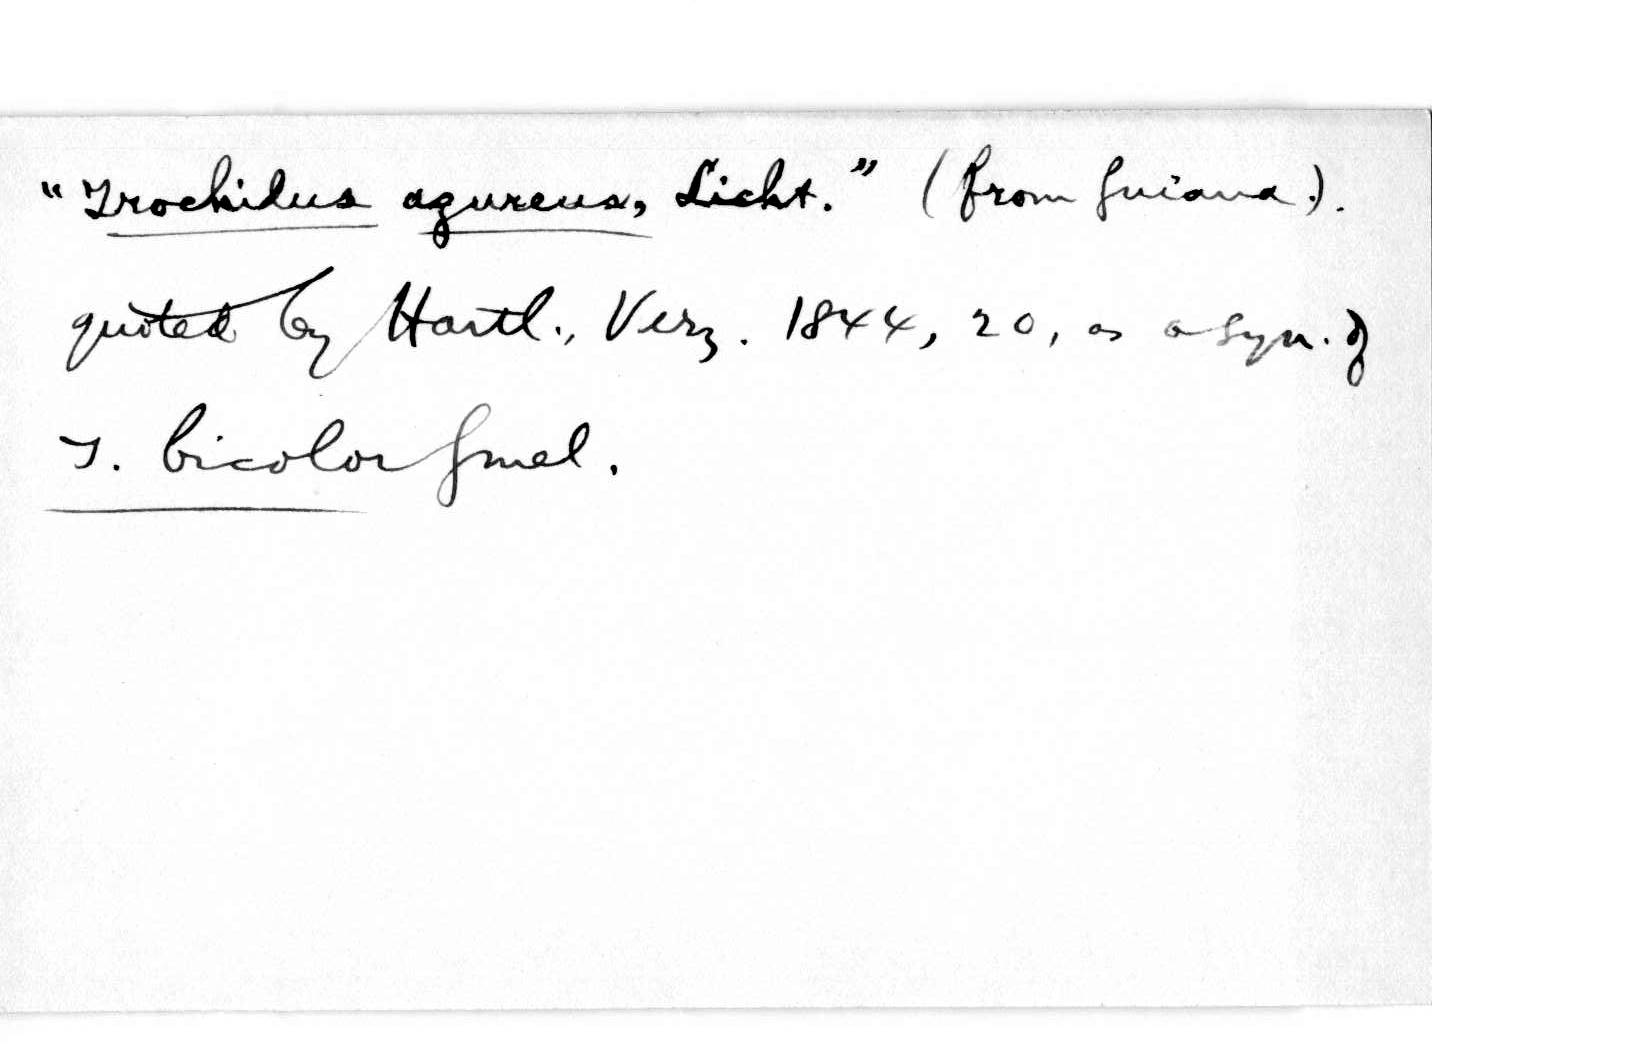 "Trochidus azureus, Licht." (from Guiana).
quoted by Hartl., Verz. 1844, 20, as a syn. of
T. bicolor Gmel.